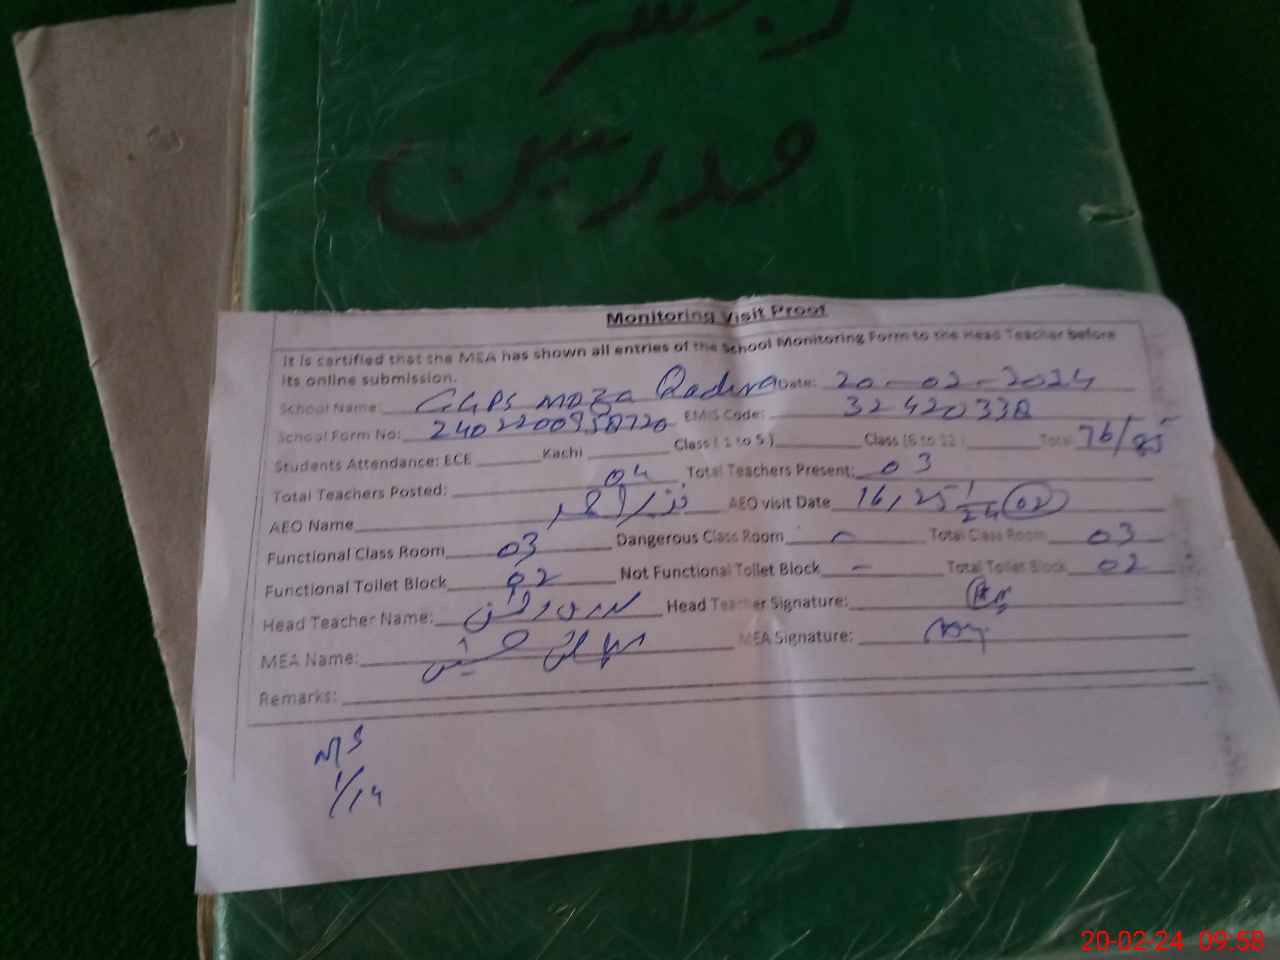 مدرسین
Monitoring Visit Proof
It is certified that the MEA has shown all entries of the School Monitoring Form to the Head Teacher before
its online submission.
School Name: GGPS MOZA Qadira Date: 20-02-2024
School Form No: EMIS Code: 32420338
Students Attendance: ECE Kachi Class ( 1 to 5 ) Class (6 to 12 ) Total 76/85
Total Teachers Posted: 04 Total Teachers Present: 03
AEO Name AEO visit Date 16, 25 1/24 (02)
Functional Class Room 03 Dangerous Class Room - Total Class Room 03
Functional Toilet Block 02 Not Functional Toilet Block - Total Toilet Block 02
Head Teacher Name: Head Teacher Signature:
MEA Name: MEA Signature:
Remarks:
1/14
20-02-24 09:58